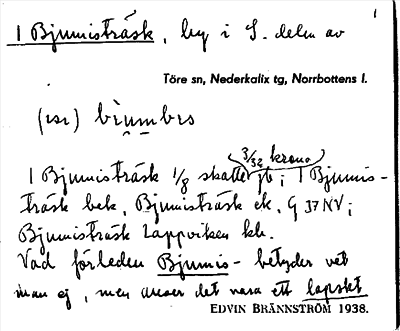 1
1 Bjumisträsk, by i S. delen av
Töre sn, Nederkalix tg, Norrbottens l.
3/32 krono
1 Bjumisträsk 1/8 skatte jb; 1 Bjumis-
träsk bek, Bjumisträsk ek, G 37 NV;
Bjumisträsk Lappviken kb.
Vad förleden Bjumis- betyder vet
man ej, men anser det vara ett lapskt
EDVIN BRÄNNSTRÖM 1938.